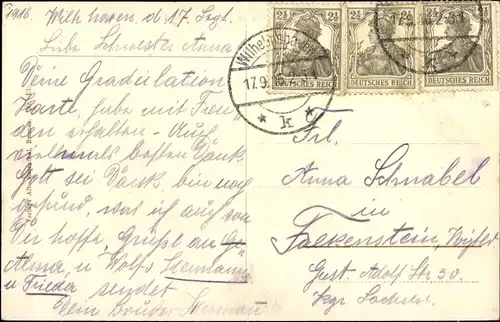 1916 Wilh haven. d. 17. Sept.
Liebe Schwester Anna
Deine Gradulation
Karte, habe mit Freu
den erhalten. Auch
vielmals besten Dank
Gott sei Dank, bin noch
gesund, was ich auch von
Dir hoffe, Grüße an
Alma, u Wolfs Hermann
u Frieda sendet
Dein Bruder Herman
2½ 2½ 2½
DEUTSCHES REICH DEUTSCHES REICH DEUTSCHES REICH
Wilhelmshaven
17.9.16
* k *
Frl.
Anna Schnabel
in
Falkenstein, Vogtl
Gust. Adolf Str 30.
Kgr. Sachsen.